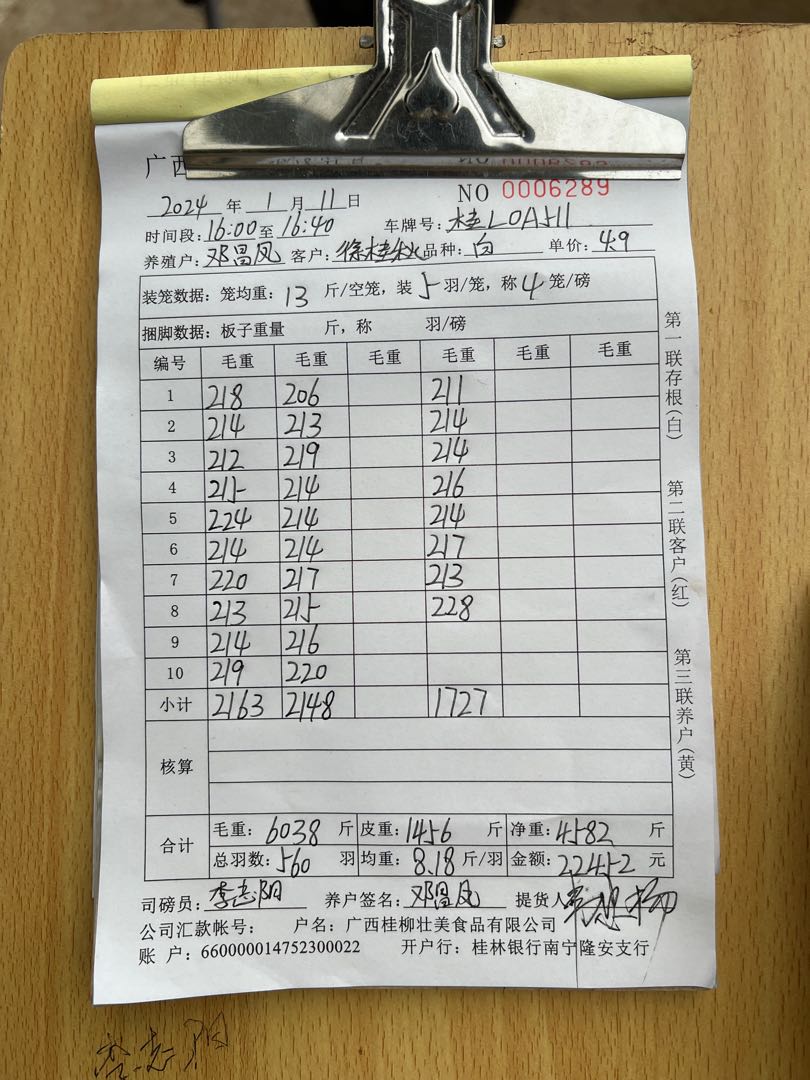 广西
NO 0006289
2024 年 1 月 11 日
时间段: 16:00 至 16:40 车牌号: 桂L0A511
养殖户: 邓昌凤 客户: 徐桂秋 品种: 白 单价: 4.9
装笼数据: 笼均重: 13 斤/空笼, 装 5 羽/笼, 称 4 笼/磅
捆脚数据: 板子重量 斤, 称 羽/磅
编号 毛重 毛重 毛重 毛重 毛重 毛重
1 218 206 211
2 214 213 214
3 212 219 214
4 215 214 216
5 224 214 214
6 214 214 217
7 220 217 213
8 213 215 228
9 214 216
10 219 220
小计 2163 2148 1727
核算
合计 毛重: 6038 斤 皮重: 1456 斤 净重: 4582 斤
总羽数: 560 羽 均重: 8.18 斤/羽 金额: 22452 元
司磅员: 李志阳 养户签名: 邓昌凤 提货人
公司汇款帐号: 户名: 广西桂柳壮美食品有限公司
账 户: 660000014752300022 开户行: 桂林银行南宁隆安支行
第一联存根(白)
第二联客户(红)
第三联养户(黄)